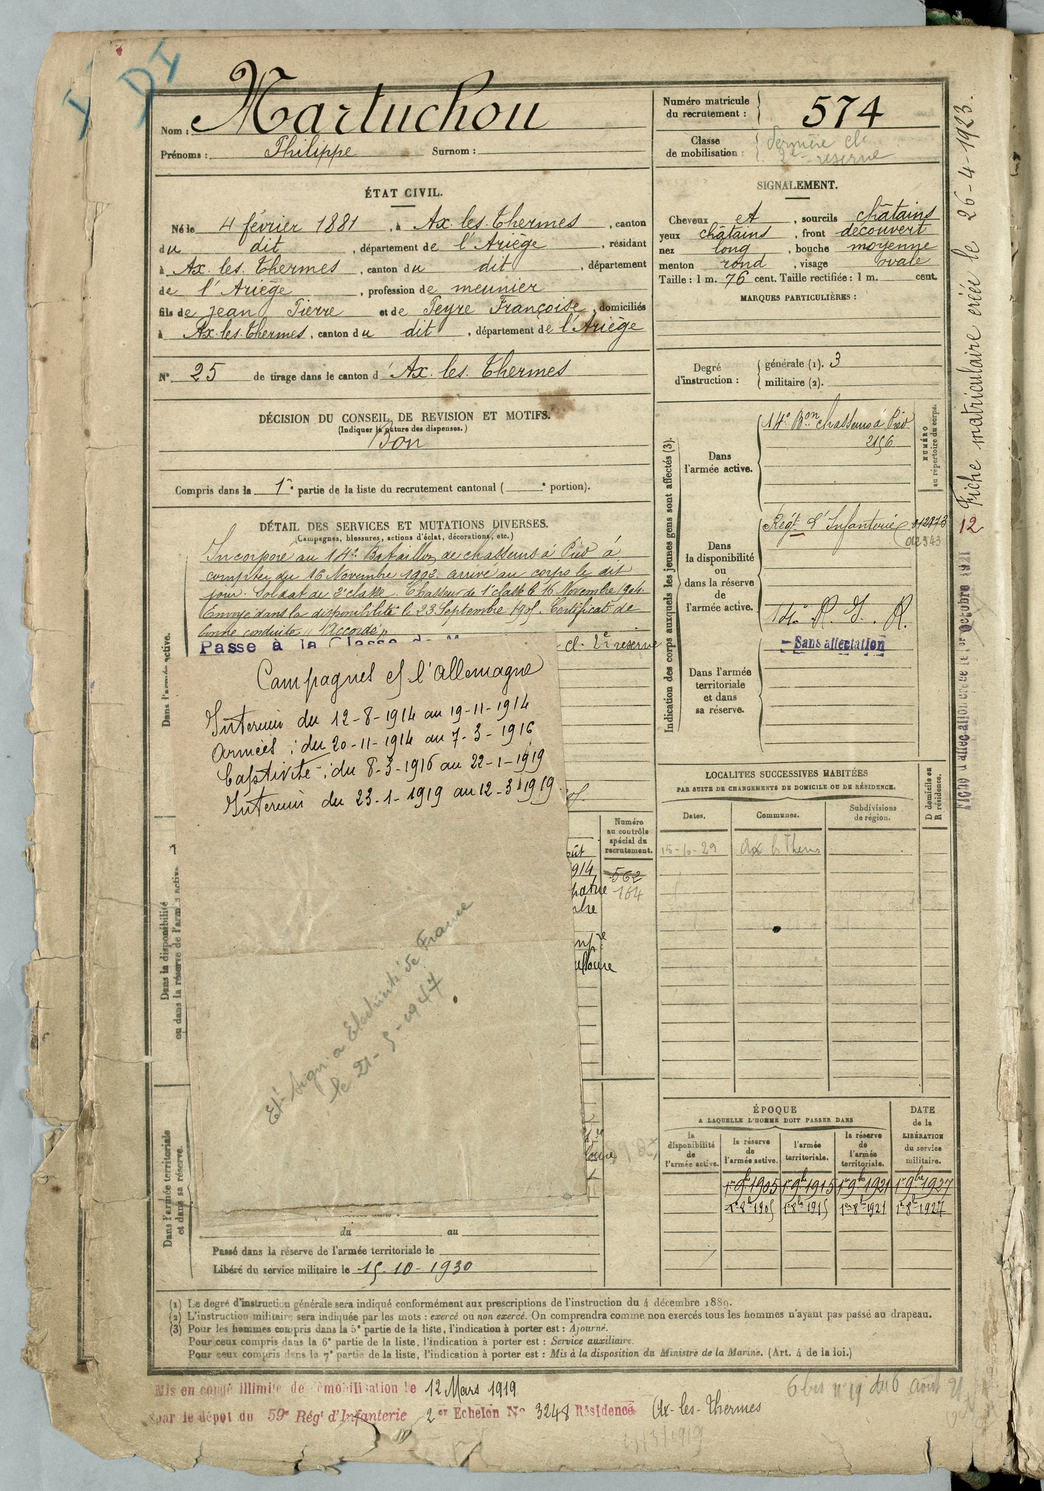 DI
Nom : Martuchou
Prénoms : Philippe Surnom :
Numéro matricule du recrutement : 574
Classe de mobilisation : dernière cl. 2e reserve
ÉTAT CIVIL.
Né le 4 février 1881, à Ax les Thermes, canton
du dit, département de l'Ariège, résidant
à Ax les Thermes, canton du dit, département
de l'Ariège, profession de meunier
fils de Jean Pierre et de Peyre Françoise, domiciliés
à Ax les Thermes, canton du dit, département de l'Ariège
N° 25 de tirage dans le canton d'Ax les Thermes
SIGNALEMENT.
Cheveux et, sourcils châtains
yeux châtains, front découvert
nez long, bouche moyenne
menton rond, visage ovale
Taille : 1 m. 76 cent. Taille rectifiée : 1 m. cent.
MARQUES PARTICULIÈRES :
Degré d'instruction : générale (1). 3
militaire (2).
DÉCISION DU CONSEIL DE REVISION ET MOTIFS.
(Indiquer la nature des dispenses.)
Bon
Compris dans la 1re partie de la liste du recrutement cantonal ( e portion).
DÉTAIL DES SERVICES ET MUTATIONS DIVERSES.
(Campagnes, blessures, actions d'éclat, décorations, etc.)
Incorporé au 14e Bataillon de chasseurs à Pied à
compter du 16 Novembre 1902 arrivé au corps le dit
jour. Soldat de 2e classe. Chasseur de 1e classe le 16 Novembre 1904.
Envoyé dans la disponibilité le 23 Septembre 1905. Certificat de
bonne conduite "Accordé"
Passe à la Classe de M cl. 2e reserve
Campagnes c/ l'Allemagne
Intérieur du 12-8-1914 au 19-11-1914
Armées : du 20-11-1914 au 7-3-1916
Captivité : du 8-3-1916 au 22-1-1919
Intérieur du 23-1-1919 au 12-3-1919
Electricité de France
le 21-5-1947
Dans l'armée active.
Dans la disponibilité
ou dans la réserve de l'armée active
Dans l'armée territoriale
et dans sa réserve.
Numéro
au contrôle
spécial du
recrutement.
562
164
du au
Passé dans la réserve de l'armée territoriale le
Libéré du service militaire le 15-10-1930
Indication des corps auxquels les jeunes gens sont affectés (3).
NUMÉRO
au répertoire du corps.
Dans l'armée active.
14e Bon chasseurs à Pied
2156
Dans la disponibilité ou dans la réserve de l'armée active.
Régt d'Infanterie
012343
14e R. I. R.
Dans l'armée territoriale et dans sa réserve.
Sans affectation
LOCALITES SUCCESSIVES HABITÉES
PAR SUITE DE CHANGEMENTS DE DOMICILE OU DE RÉSIDENCE.
Dates. Communes. Subdivisions de région. D domicile ou R résidence.
15-6-29 Ax les Therms
ÉPOQUE
A LAQUELLE L'HOMME DOIT PASSER DANS
DATE de la LIBÉRATION du service militaire.
la disponibilité de l'armée active. la réserve de l'armée active. l'armée territoriale. la réserve de l'armée territoriale.
1er 9bre 1905 1er 9bre 1915 1er 9bre 1921 1er 9bre 1927
1er 8bre 1905 1er 8bre 1915 1er 8bre 1921 1er 8bre 1927
Fiche matriculaire créée le 26-4-1923.
12
(1) Le degré d'instruction générale sera indiqué conformément aux prescriptions de l'instruction du 4 décembre 1889.
(2) L'instruction militaire sera indiquée par les mots : exercé ou non exercé. On comprendra comme non exercés tous les hommes n'ayant pas passé au drapeau.
(3) Pour les hommes compris dans la 5e partie de la liste, l'indication à porter est : Ajourné.
Pour ceux compris dans la 6e partie de la liste, l'indication à porter est : Service auxiliaire.
Pour ceux compris dans la 7e partie de la liste, l'indication à porter est : Mis à la disposition du Ministre de la Marine. (Art. 4 de la loi.)
Mis en congé illimité de démobilisation le 12 Mars 1919
par le dépôt du 59e Régt d'Infanterie 2er Echelon N° 3248 Résidence Ax-les-Thermes
6 bis n° 19 du 6 août